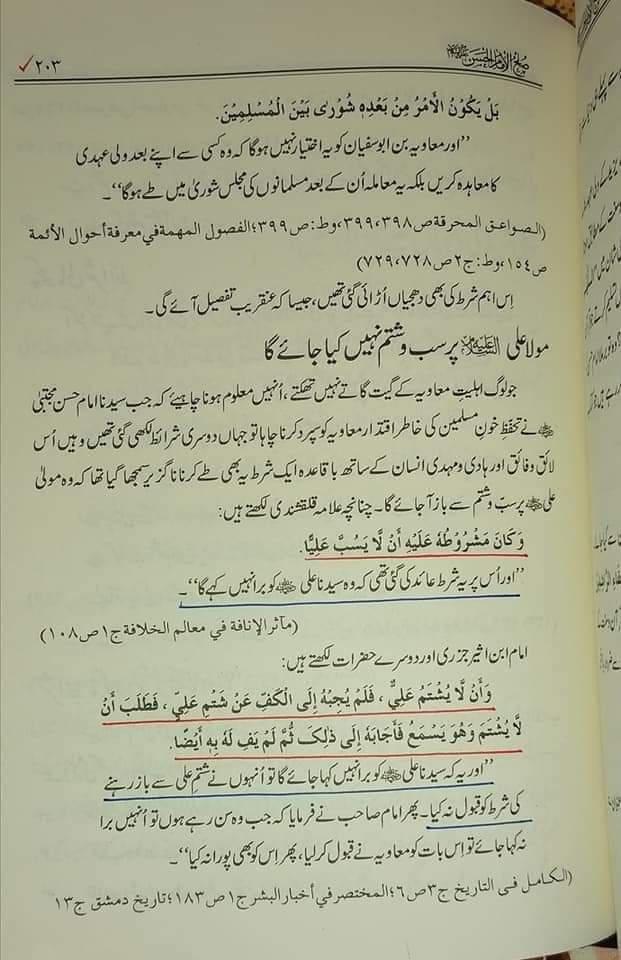 صلح الإمام الحسن
۲۰۳
بَلْ يَكُوْنُ الْأَمْرُ مِنْ بَعْدِهٖ شُوْرٰى بَيْنَ الْمُسْلِمِيْنَ.
’’اور معاویہ بن ابوسفیان کو یہ اختیار نہیں ہوگا کہ وہ کسی سے اپنے بعد ولی عہدی
کا معاہدہ کریں بلکہ یہ معاملہ اُن کے بعد مسلمانوں کی مجلس شوریٰ میں طے ہوگا‘‘۔
(الصواعق المحرقة ص ۳۹۸، ۳۹۹، وط: ص ۳۹۹؛ الفصول المهمة في معرفة أحوال الأئمة
ص ١٥٤، وط: ج ٢ ص ۷۲۸، ۷۲۹)
اِس اہم شرط کی بھی دھجیاں اُڑائی گئی تھیں، جیسا کہ عنقریب تفصیل آئے گی۔
مولا علی علیہ السلام پر سب و شتم نہیں کیا جائے گا
جو لوگ اہلیتِ معاویہ کے گیت گاتے نہیں تھکتے، اُنہیں معلوم ہونا چاہیئے کہ جب سیدنا امام حسن مجتبیٰ
نے تحفظِ خونِ مسلمین کی خاطر اقتدار معاویہ کو سپرد کرنا چاہا تو جہاں دوسری شرائط لکھی گئی تھیں وہیں اُس
لائق و فائق اور ہادی و مہدی انسان کے ساتھ باقاعدہ ایک شرط یہ بھی طے کرنا ناگزیر سمجھا گیا تھا کہ وہ مولیٰ
علی پر سبّ و شتم سے باز آ جائے گا۔ چنانچہ علامہ قلقشندی لکھتے ہیں:
وَ كَانَ مَشْرُوْطُهٗ عَلَيْهِ أَنْ لَّا يَسُبَّ عَلِيًّا.
’’اور اُس پر یہ شرط عائد کی گئی تھی کہ وہ سیدنا علی کو برا نہیں کہے گا‘‘۔
(مآثر الإنافة في معالم الخلافة ج ۱ ص ۱۰۸)
امام ابن اثیر جزری اور دوسرے حضرات لکھتے ہیں:
وَأَنْ لَّا يُشْتَمُ عَلِيٌّ، فَلَمْ يُجِبْهُ إِلَى الْكَفِّ عَنْ شَتْمِ عَلِيٍّ، فَطَلَبَ أَنْ
لَّا يُشْتَمَ وَهُوَ يَسْمَعُ فَأَجَابَهٗ إِلٰى ذٰلِكَ ثُمَّ لَمْ يَفِ لَهٗ بِهٖ أَيْضًا.
’’اور یہ کہ سیدنا علی کو برا نہیں کہا جائے گا تو اُنہوں نے شتمِ علی سے باز رہنے
کی شرط کو قبول نہ کیا۔ پھر امام صاحب نے فرمایا کہ جب وہ سن رہے ہوں تو اُنہیں برا
نہ کہا جائے تو اِس بات کو معاویہ نے قبول کر لیا، پھر اِس کو بھی پورا نہ کیا‘‘۔
(الكامل في التاريخ ج ۳ ص ٦؛ المختصر في أخبار البشر ج ۱ ص ۱۸۳؛ تاريخ دمشق ج ۱۳